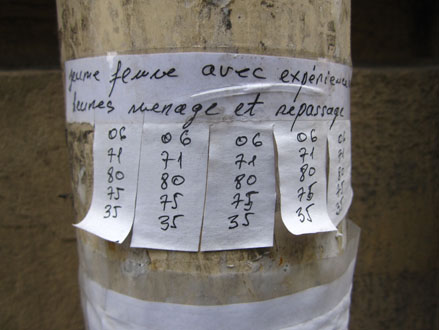 jeune femme avec expérience
heures menage et repassage
06
71
80
75
35
06
71
80
75
35
06
71
80
75
35
06
71
80
75
35
06
71
80
75
35